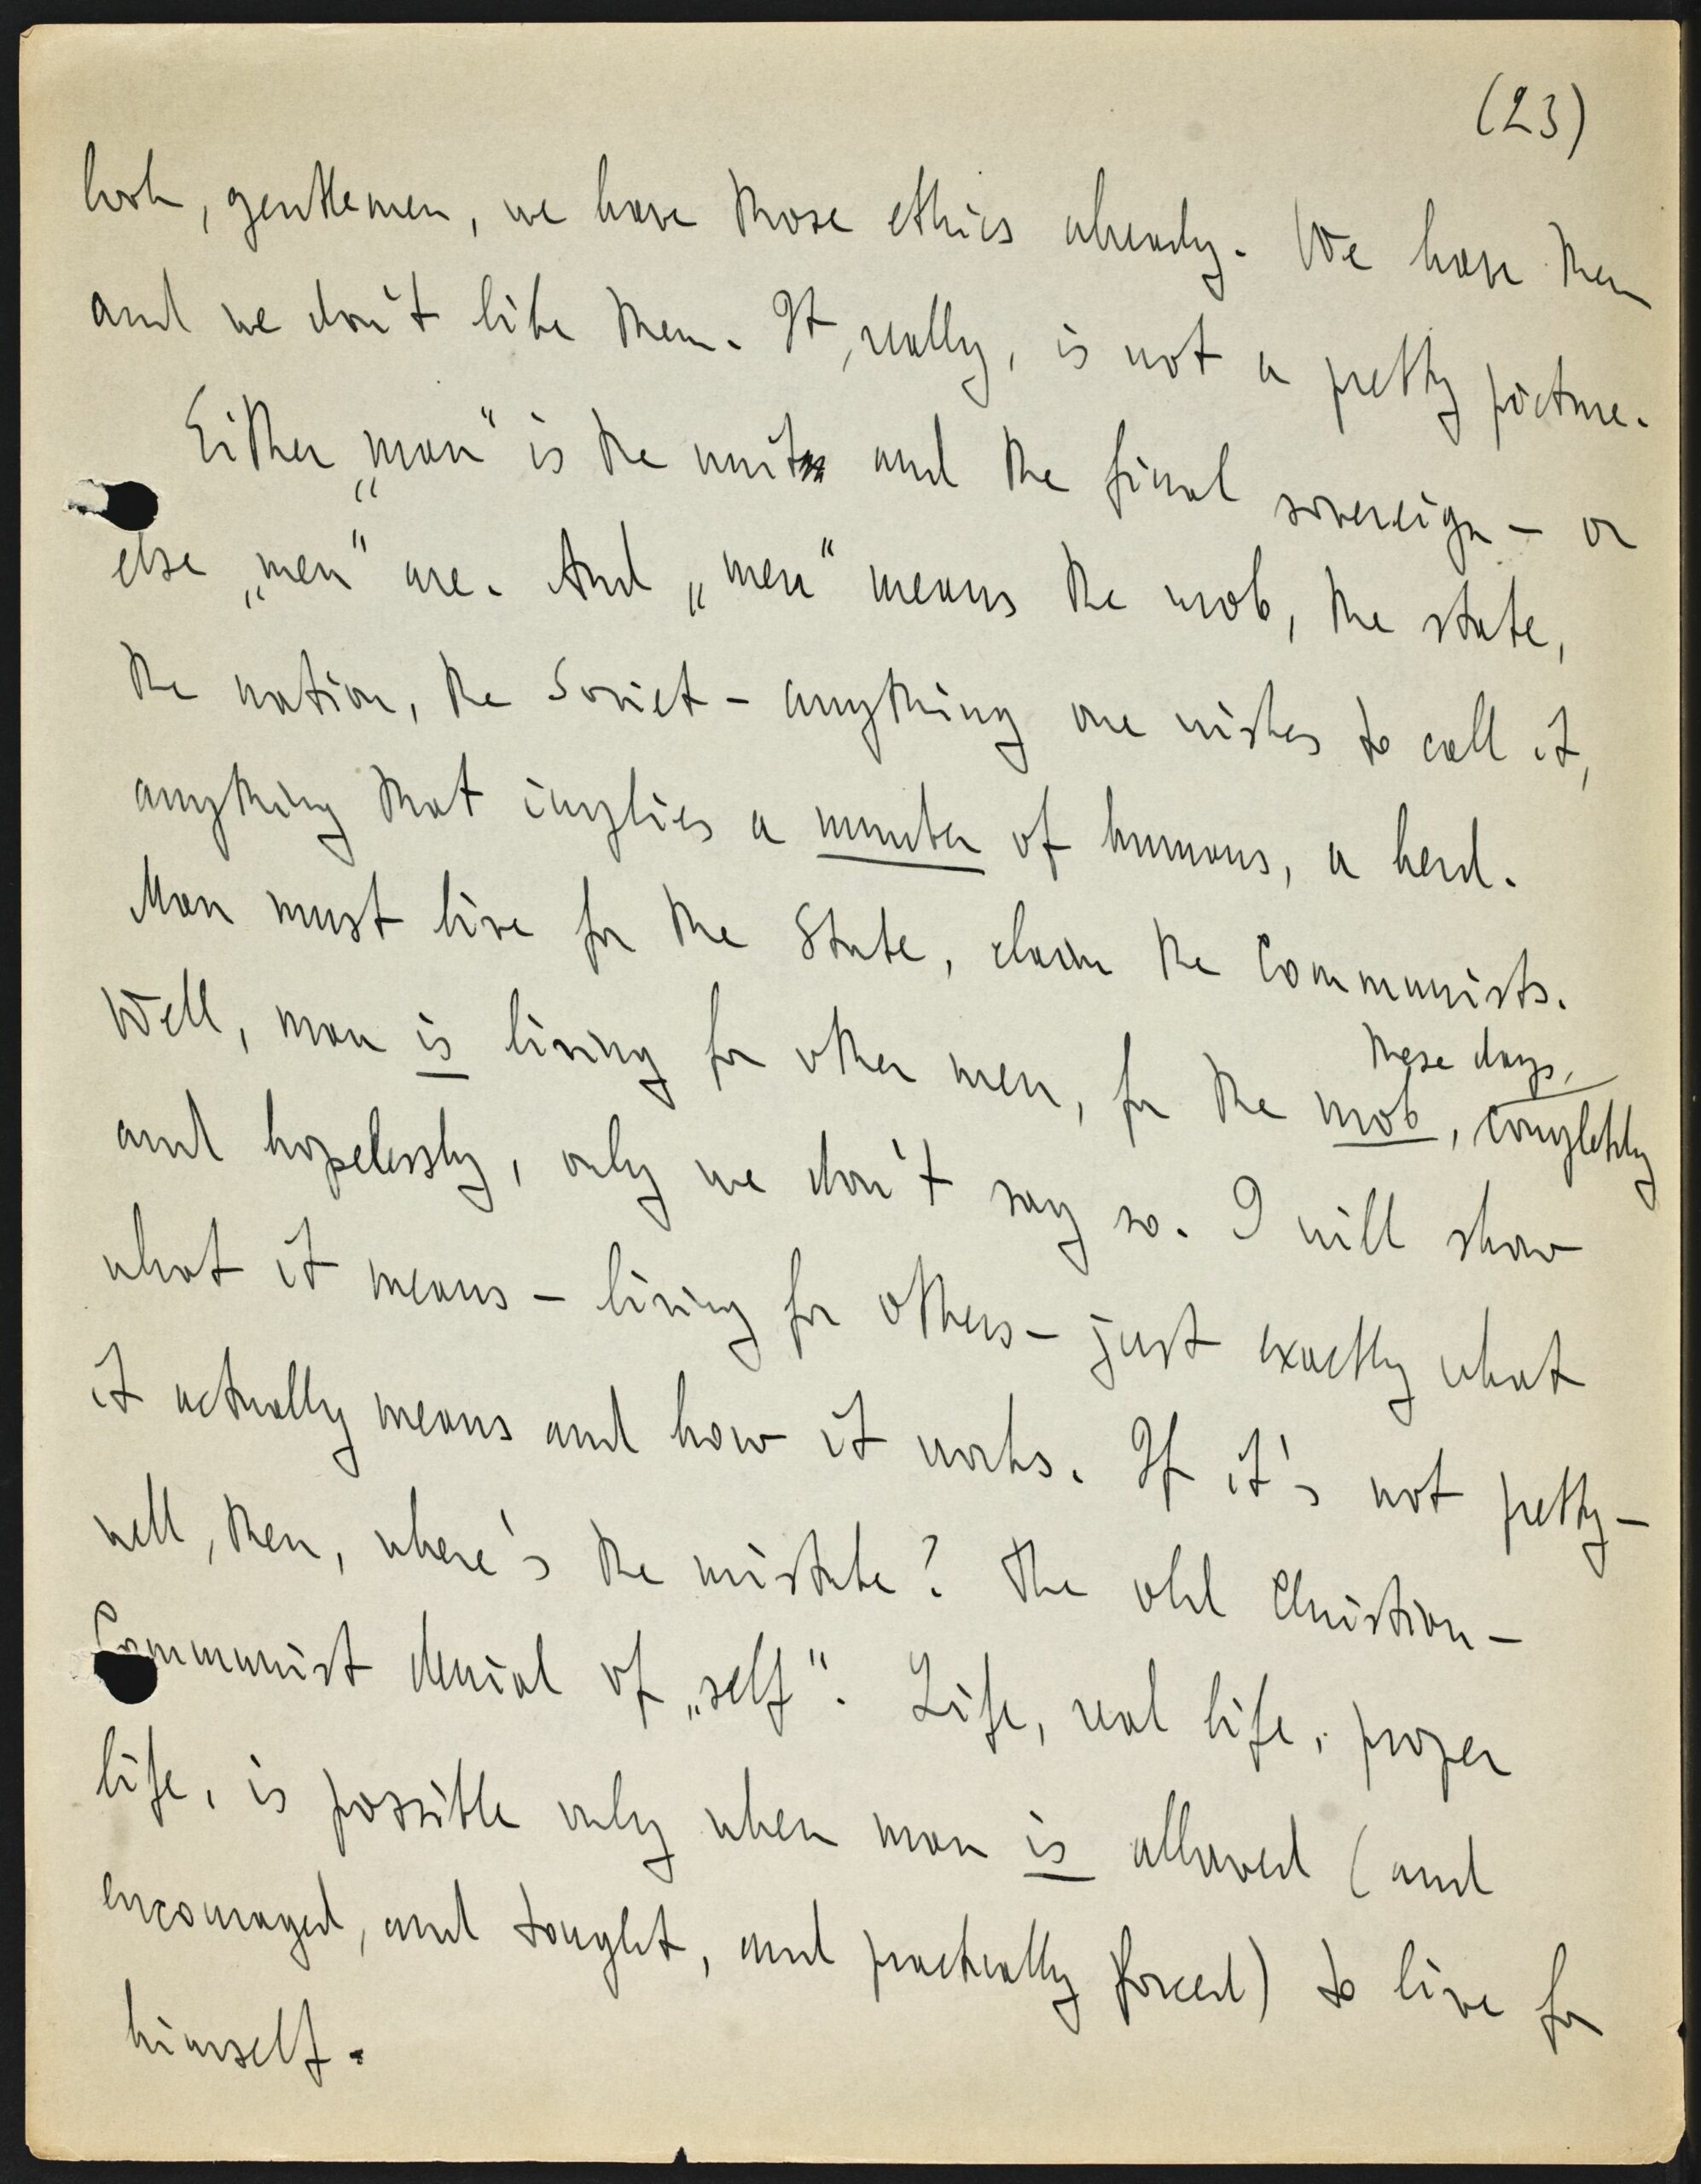 (23)
look, gentlemen, we have those ethics already. We have them
and we don't like them. It, really, is not a pretty picture.
Either „man“ is the unit and the final sovereign – or
else „men“ are. And „men“ means the mob, the state,
the nation, the Soviet – anything one wishes to call it,
anything that implies a number of humans, a herd.
Man must live for the State, claim the Communists.
these days,
Well, man is living for other men, for the mob, completely
and hopelessly, only we don't say so. I will show
what it means – living for others – just exactly what
it actually means and how it works. If it's not pretty –
well, then, where's the mistake? The old Christian –
Communist denial of „self“. Life, real life, proper
life, is possible only when man is allowed (and
encouraged, and taught, and practically forced) to live for
himself.